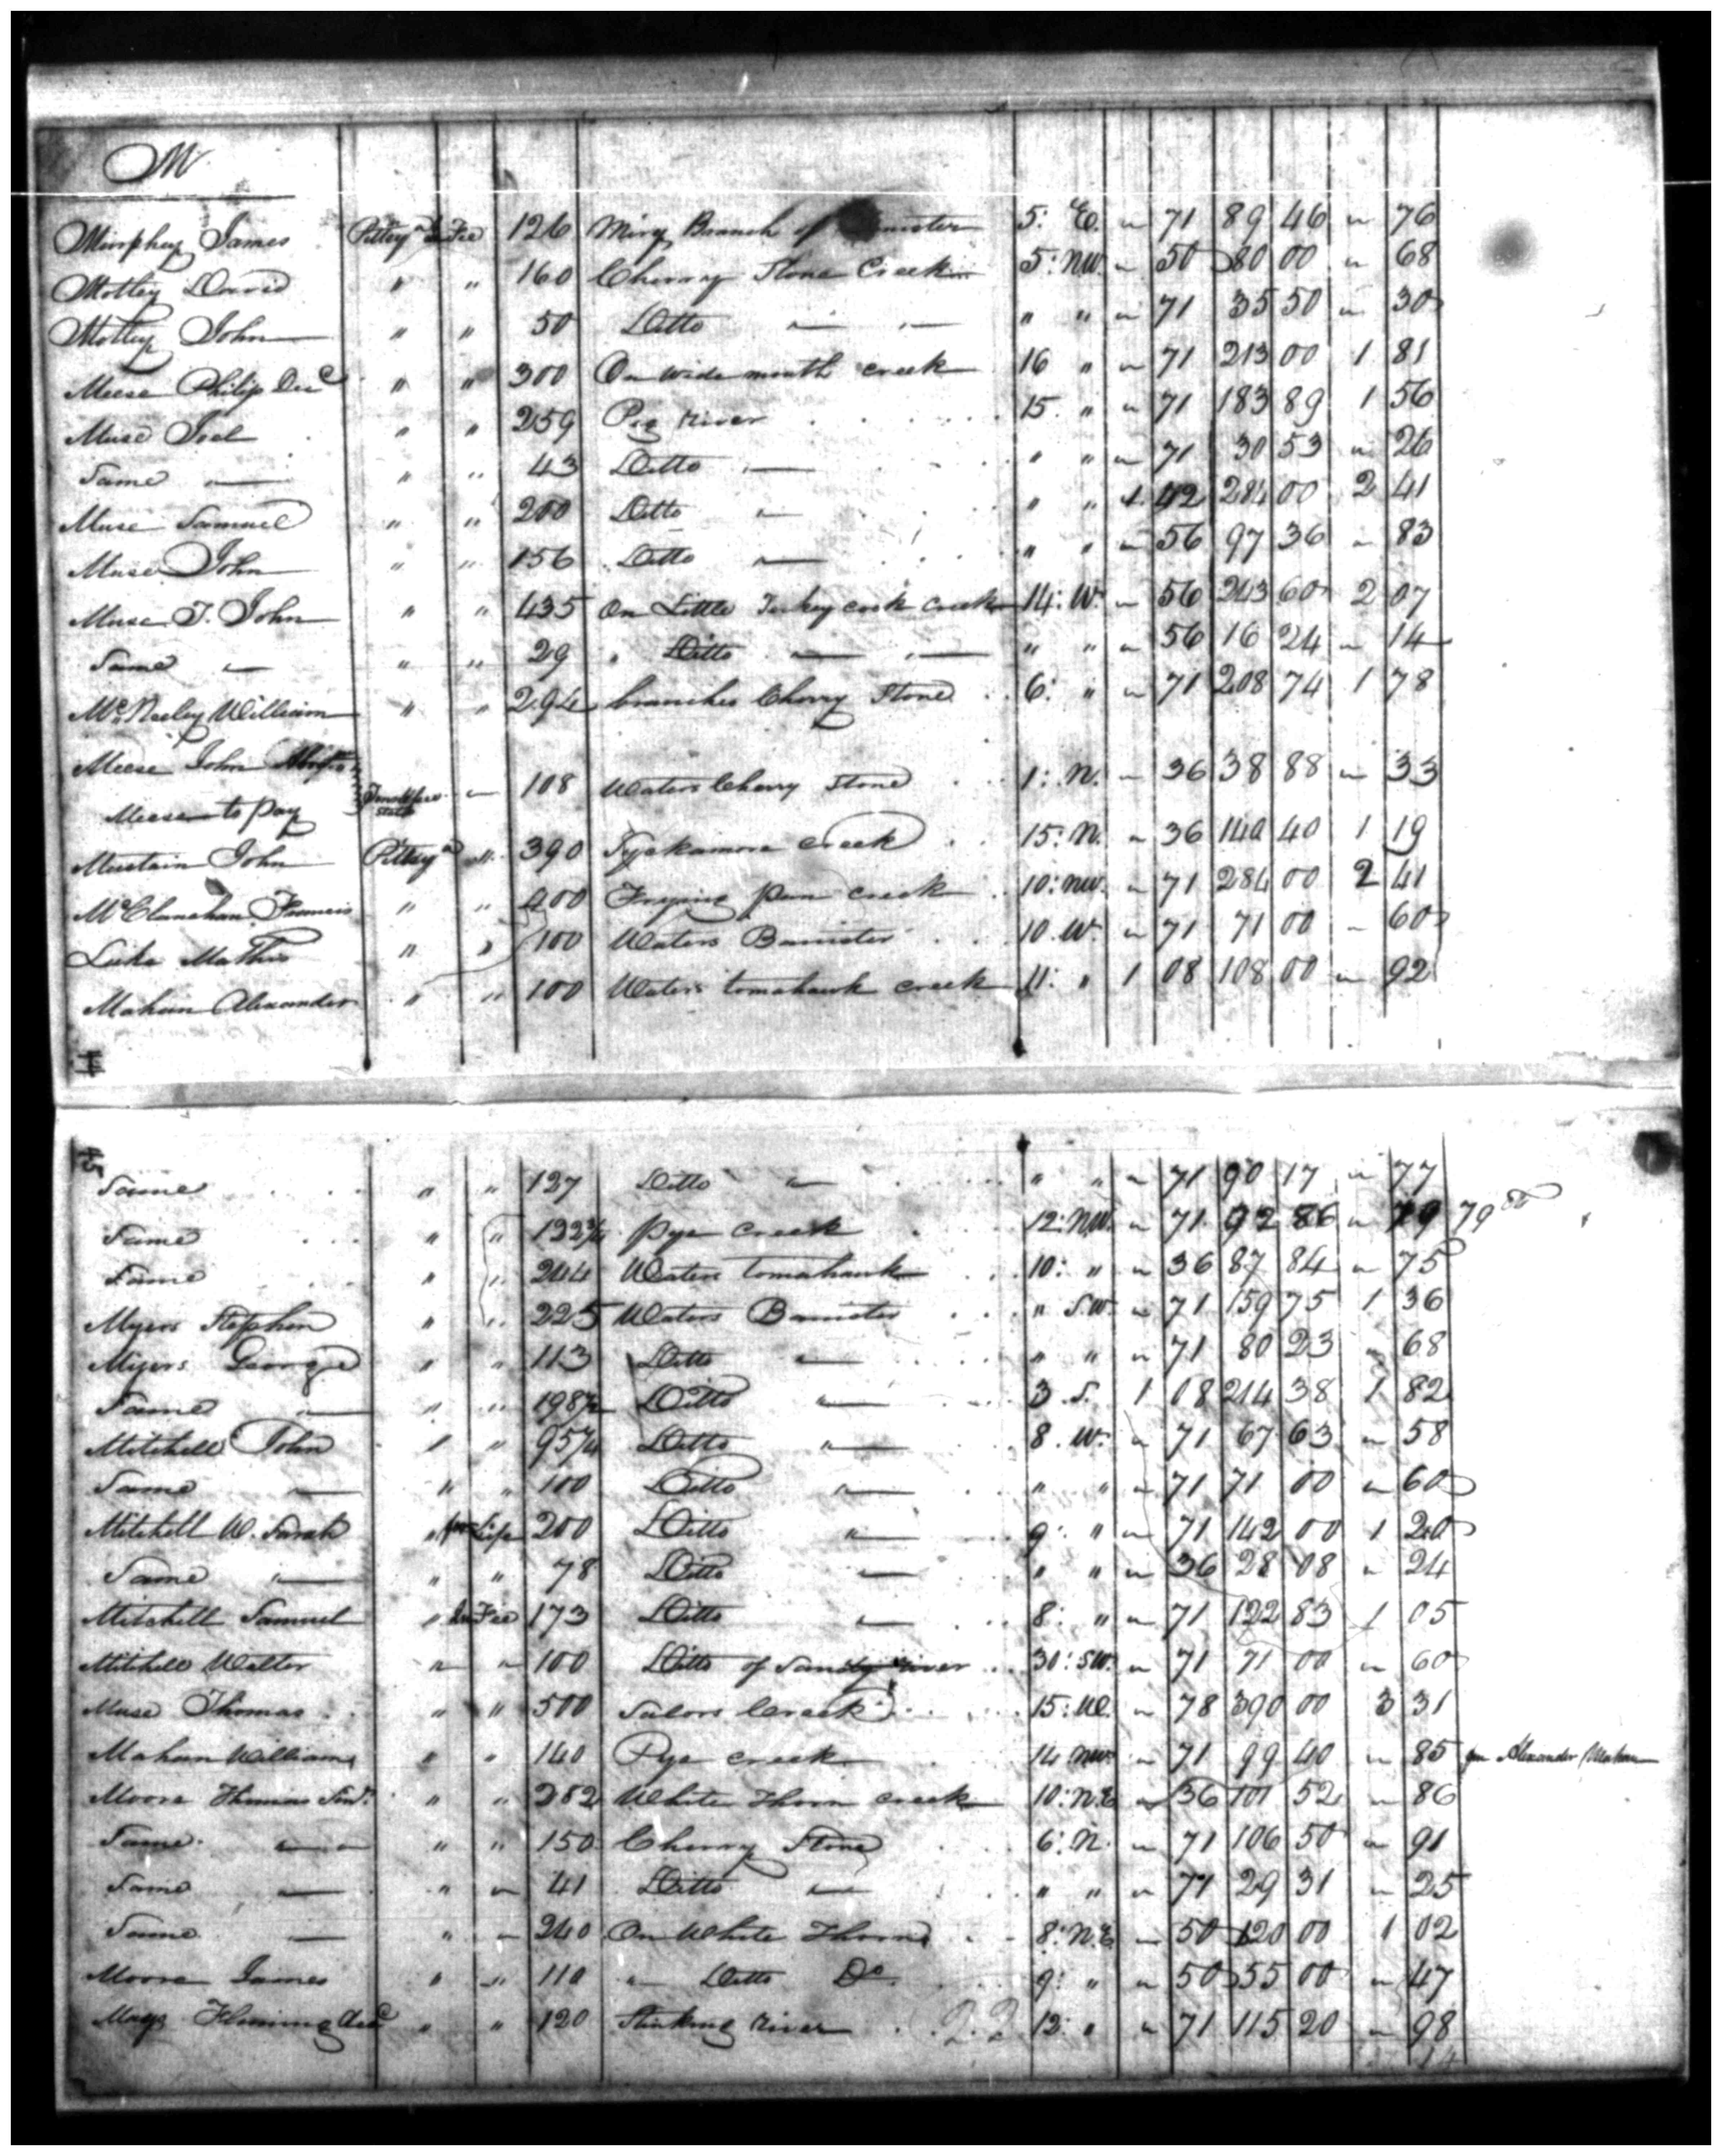 M
Murphey James Pittsya In Fee 126 Miry Branch of 5: E. " 71 89 46 " 76
Motley David " " 160 Cherry Stone Creek 5: NW. " 50 80 00 " 68
Motley John " " 50 Ditto " " " " 71 35 50 " 30
Meese Philip Decd " " 300 On wide mouth creek 16 " " 71 213 00 1 81
Muse Joel " " 259 Pig River 15 " " 71 183 89 1 56
Same " " 43 Ditto " " " 71 30 53 " 26
Muse Samuel " " 200 Ditto " " " 1 42 284 00 2 41
Muse John " " 156 Ditto " " " 56 97 36 " 83
Muse T. John " " 435 On Little Turkey cock creek 14: W. " 56 243 60 2 07
Same " " " 29 " Ditto " " " " " 56 16 24 " 14
McNeeley William " " 294 branches Cherry Stone 6: " " 71 208 74 1 78
Meese John
Meese to pay " 108 Waters Cherry Stone 1: N. " 36 38 88 " 33
Mustain John Pittsya " 390 Syckamore Creek 15: N. " 36 140 40 1 19
McClanahan Francis " " 400 Frying pan creek 10: NW. " 71 284 00 2 41
Luke Mathis " " 100 Waters Banister 10. W. " 71 71 00 " 60
Mahan Alexander " " 100 Waters tomahawk creek 11: " 1 08 108 00 " 92
Same " " 127 Ditto " " " " 71 90 17 " 77
Same " " 132¾ pye creek 12: NW. " 71 92 86 " 79 79
Same " " 244 Waters tomahawk 10: " " 36 87 84 " 75
Myers Stephen " " 225 Waters Banister " S.W. " 71 159 75 1 36
Myers George " " 113 Ditto " " " " 71 80 23 " 68
Same " " " 198½ Ditto " 3 S. 1 08 214 38 1 82
Mitchell John " " 95¼ Ditto " 8. W. " 71 67 63 " 58
Same " " 100 Ditto " " " 71 71 00 " 60
Mitchell W. Sarah " for Life 200 Ditto " 9: " " 71 142 00 1 20
Same " " " 78 Ditto " " " 36 28 08 " 24
Mitchell Samuel " In Fee 173 Ditto 8: " " 71 122 83 1 05
Mitchell Walter " " 100 Ditto of Sandy river 30: SW. " 71 71 00 " 60
Muse Thomas " " 500 Sailors Creek 15: W. " 78 390 00 3 31
Mahan William " " 140 Pye creek 14 NW. " 71 99 40 " 85 Alexander Mahan
Moore Thomas Senr. " " 282 White Thorn creek 10: N.E " 36 101 52 " 86
Same " " " 150 Cherry Stone 6: N. " 71 106 50 " 91
Same " " 41 Ditto " " " " 71 29 31 " 25
Same " " 240 On White Thorn 8: N.E " 50 120 00 1 02
Moore James " " 110 " Ditto Do. 9: " " 50 55 00 " 47
Mays Fleming decd " " 120 Stinking River 12: " " 71 115 20 " 98
14